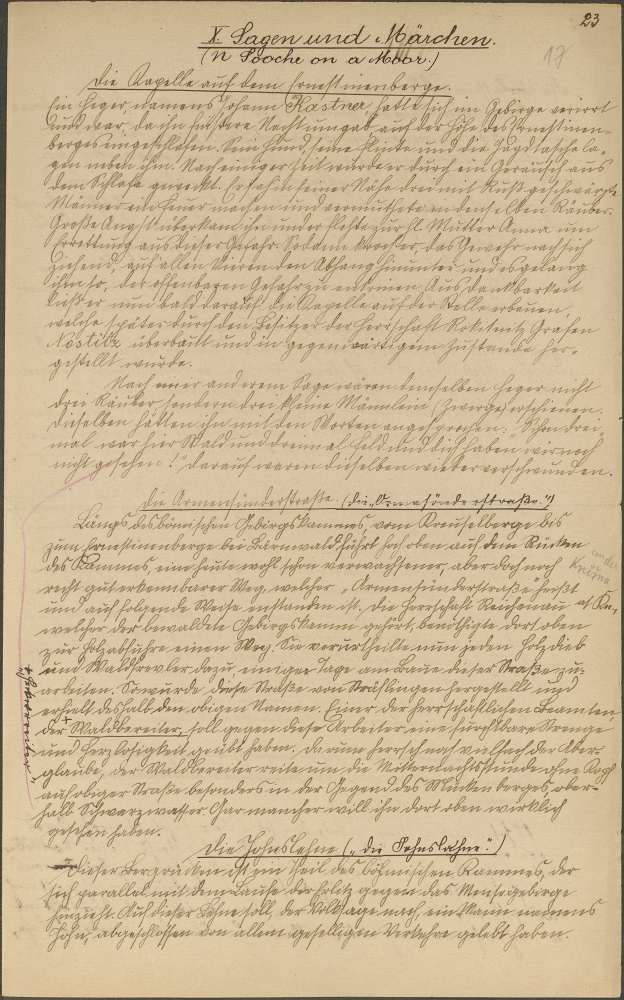 23
X Sagen und Märchen.
17
(N Sooche on a Moor.)
Die Kapelle auf dem Ernestinenberge.
Ein Heger, namens Johann Kastner, hatte sich im Gebirge verirrt
und war, da ihn finstere Nacht umgab, auf der Höhe des Ernestinen-
berges eingeschlafen. Sein Hund, seine Flinte und die Jagdtasche la-
gen neben ihm. Nach einiger Zeit wurde er durch ein Geräusch aus
dem Schlafe geweckt. Er sah in seiner Nähe drei mit Ruß geschwärzte
Männer ein Feuer machen und vermuthete in denselben Räuber.
Große Angst überkam ihn und er flehte zur hl. Mutter Anna um
Errettung aus dieser Gefahr. Sodann kroch er, das Gewehr nach sich
ziehend, auf allen Vieren den Abhang hinunter und es gelang
ihm so, der offenbaren Gefahr zu entrinnen. Aus Dankbarkeit
ließ er nun bald darauf die Kapelle auf der Stelle erbauen,
welche später durch den Besitzer der Herrschaft Rokitnitz Grafen
Nostitz überbaut und in gegenwärtigem Zustande her-
gestellt wurde.
Nach einer anderen Sage wären demselben Heger nicht
drei Räuber, sondern drei kleine Männlein (Zwerge) erschienen.
Dieselben hätten ihn mit den Worten angesprochen: "Schon drei-
mal war hier Wald und dreimal Feld und dich haben wir noch
nicht gesehen!" Darauf waren dieselben wieder verschwunden.
Die Armensünderstraße. (die "Ormasönderstraße.")
Längs des bömischen Gebirgskammes, vom Kreuselberge bis
zum Ernestinenberge bei Bärnwald führt hoch oben auf dem Rücken
des Kammes, eine heute wohl schon verwachsener, aber doch noch
recht gut erkennbarer Weg, welcher "Armensünderstraße" heißt
und auf folgende Weise entstanden ist. Die Herrschaft Reichenau
welcher der bewaldete Gebirgskamm gehört, benöthigte dort oben
zur Holzabfuhr einen Weg. Sie verurtheilte nun jeden Holzdieb
und Waldfrevler dazu, einige Tage am Baue dieser Straße zu
arbeiten. So wurde diese Straße von Sträflingen hergestellt und
erhielt deshalb den obigen Namen. Einer der herrschaftlichen Beamten,
der + Waldbereiter, soll gegen diese Arbeiter eine furchtbare Strenge
und Herzlosigkeit geübt haben. Darum herrscht noch vielfach der Aber-
glaube, der Waldbereiter reite um die Mitternachtsstunde ohne Kopf
auf obiger Straße besonders in der Gegend des Mückenberges, ober-
halb Schwarzwasser. Gar mancher will ihn dort oben wirklich
gesehen haben.
Die Johnslehne ("die Johnslahne.")
Dieser Bergrücken ist ein Theil des böhmischen Kammes, der
sich parallel mit dem Laufe der Erlitz gegen das Mensegebirge
hinzieht. Auf dieser Lehne soll, der Volkssage nach, ein Mann namens
John, abgeschlossen von allem geselligen Verkehre gelebt haben.